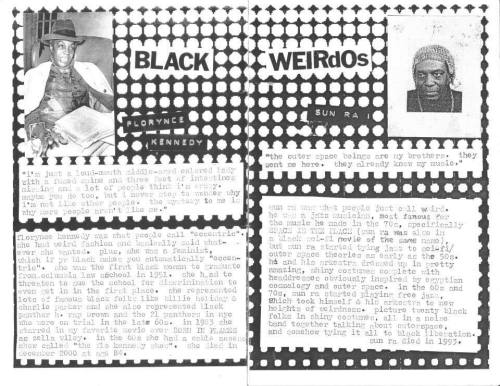 BLACK WEIRdOs
FLORYNCE
KENNEDY
SUN RA
"i'm just a loud-mouth middle-aged colored lady
with a fused spine and three feet of intestines
missing and a lot of people think i'm crazy.
maybe you do too, but i never stop to wonder why
i'm not like other people. the mystery to me is
why more people aren't like me."
florynce kennedy was what people call "eccentric".
she had weird fashion and basically said what-
ever she wanted. plus, she was a feminist,
which if yr black makes you automatically "eccen-
tric". she was the first black women to graduate
from columbia law school in 1951. she had to
threaten to sue the school for discrimination to
even get in in the first place. she represented
lots of famous black folks like billie holiday &
charlie parker and she also represented black
panther h. rap brown and the 21 panthers in nyc
who were on trial in the late 60s. in 1983 she
starred in my favorite movie ever BORN IN FLAMES
as zella wiley. in the 80s she had a cable access
show called "the flo kennedy show". she died in
december 2000 at age 84.
"the outer space beings are my brothers. they
sent me here. they already know my music."
sun ra was what people just call weird.
he was a jazz musician, most famous for
the music he made in the 70s, specifically
SPACE IS THE PLACE (sun ra was also in
a black sci-fi movie of the same name),
but sun ra started getting into sci-fi/
outer space theories as early as the 50s.
he and his arkestra dressed up in pretty
amazing, shiny costumes complete with
headdresses obviously inspired by egyptian
cosmology and outer space. in the 60s and
70s, sun ra started playing free jazz,
which took himself & his arkestra to new
heights of weirdness. picture twenty black
folks in shiny costumes, all in a noise
band together talking about outerspace,
and somehow tying it all to black liberation.
sun ra died in 1993.